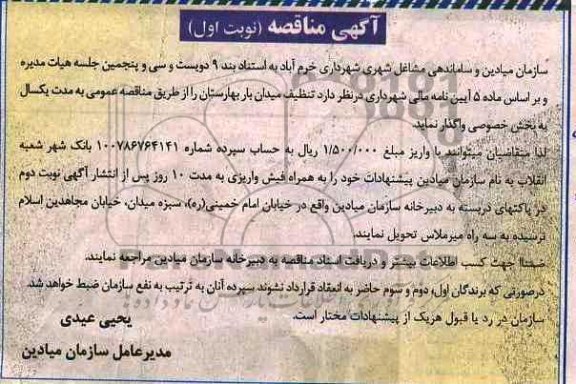 آگهی مناقصه (نوبت اول)
سازمان میادین و ساماندهی مشاغل شهری شهرداری خرم آباد به استناد بند ۹ دویست و سی و پنجمین جلسه هیات مدیره
و بر اساس ماده ۵ آیین نامه مالی شهرداری درنظر دارد تنظیف میدان بار بهارستان را از طریق مناقصه عمومی به مدت یکسال
به بخش خصوصی واگذار نماید.
لذا متقاضیان میتوانند با واریز مبلغ ۱/۵۰۰/۰۰۰ ریال به حساب سپرده شماره ۱۰۰۷۸۶۷۶۴۱۴۱ بانک شهر شعبه
انقلاب به نام سازمان میادین پیشنهادات خود را به همراه فیش واریزی به مدت ۱۰ روز پس از انتشار آگهی نوبت دوم
در پاکتهای دربسته به دبیرخانه سازمان میادین واقع در خیابان امام خمینی(ره)، سبزه میدان، خیابان مجاهدین اسلام
نرسیده به سه راه میرملاس تحویل نمایند.
ضمنا جهت کسب اطلاعات بیشتر و دریافت اسناد مناقصه به دبیرخانه سازمان میادین مراجعه نمایند.
درصورتی که برندگان اول، دوم و سوم حاضر به انعقاد قرارداد نشوند سپرده آنان به ترتیب به نفع سازمان ضبط خواهد شد.
سازمان در رد یا قبول هریک از پیشنهادات مختار است.
یحیی عیدی
مدیرعامل سازمان میادین